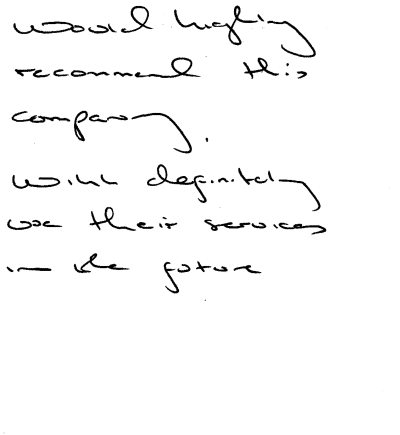 would highly
recommend this
company.
will definitely
use their services
in the future